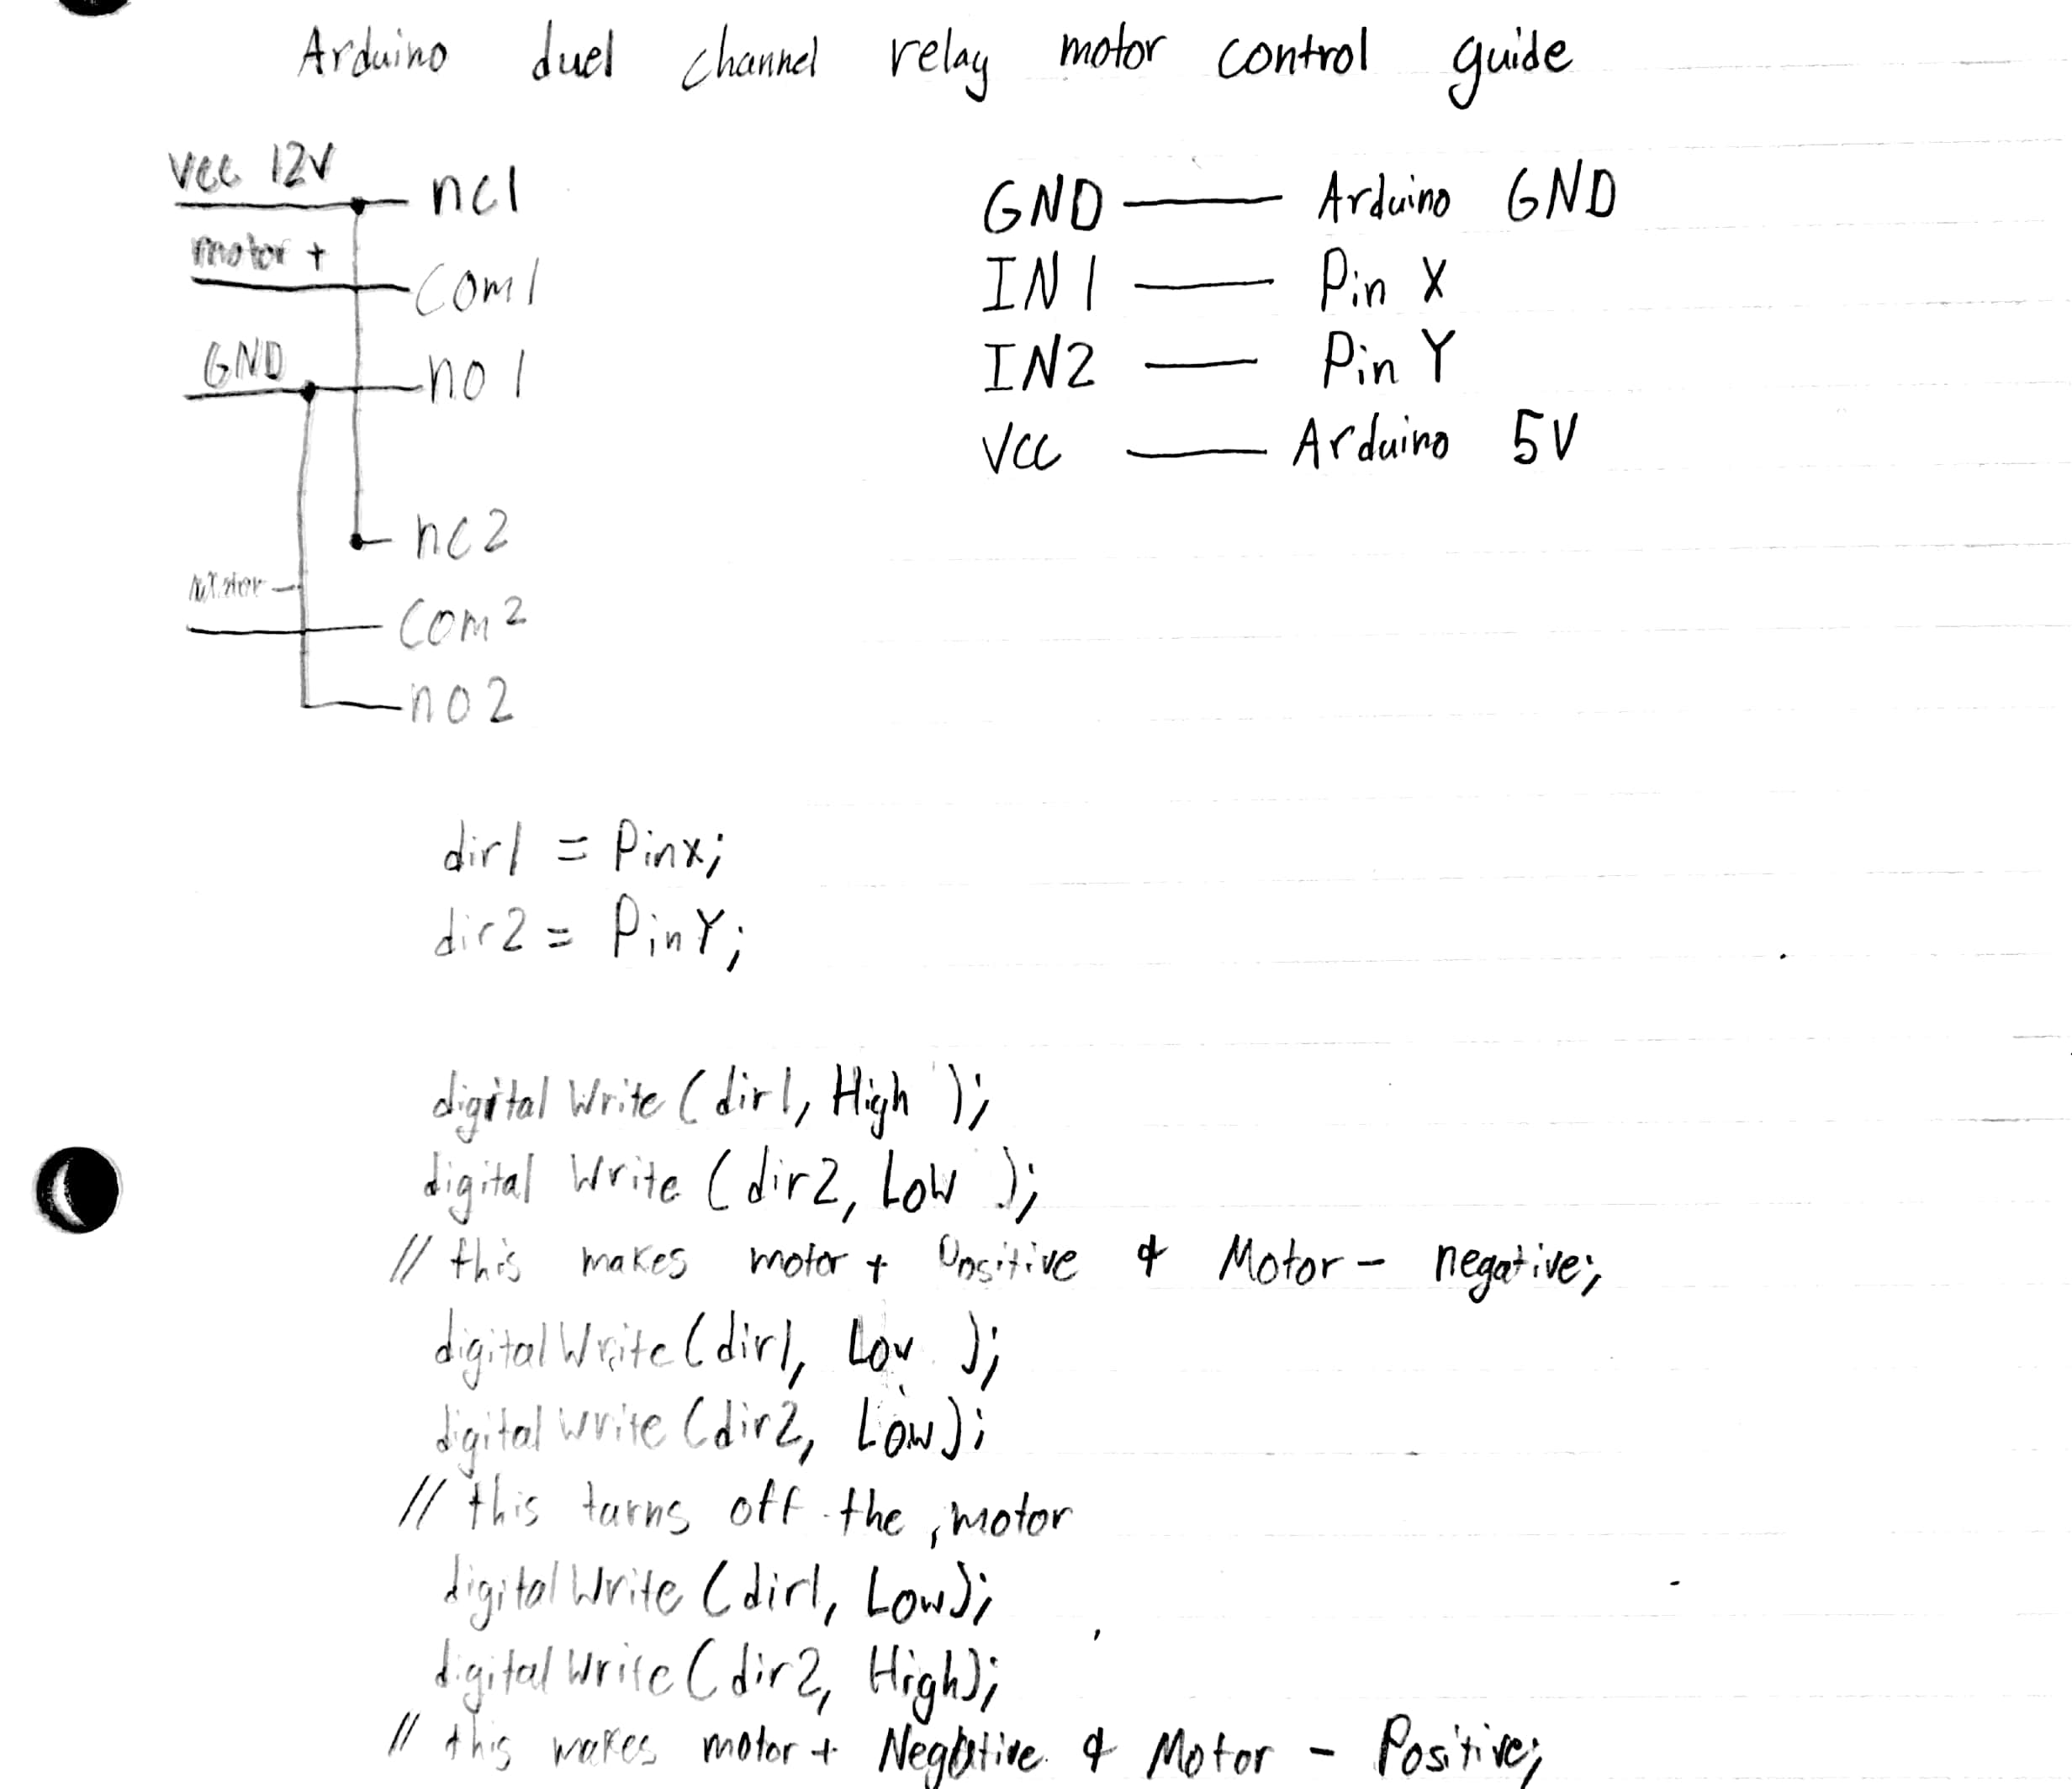 Arduino duel channel relay motor control guide
VCC 12V
nc1
motor +
Com1
GND
no1
nc2
motor -
Com2
no2
GND Arduino GND
IN1 Pin X
IN2 Pin Y
VCC Arduino 5V
dir1 = Pinx;
dir2 = PinY;
digital Write (dir1, High );
digital Write (dir2, Low );
// this makes motor + Positive & Motor - negative;
digitalWrite (dir1, Low );
digital write (dir2, Low);
// this turns off the motor
digitalWrite (dir1, Low);
digitalWrite (dir2, High);
// this makes motor + Negative & Motor - Positive;